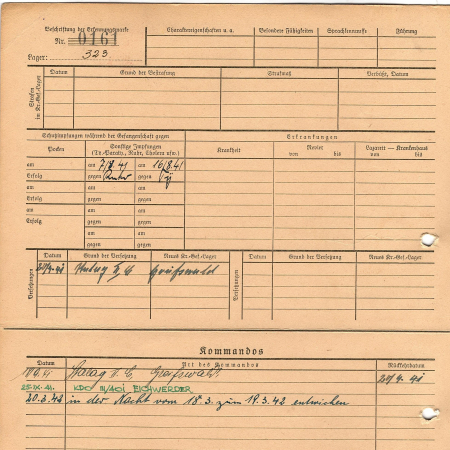 Beschriftung der Erkennungsmarke
Nr. 0161
Lager: 323
Charaktereigenschaften u. a.
Besondere Fähigkeiten
Sprachkenntnisse
Führung
Strafen im Kr.-Gef.-Lager
Datum
Grund der Bestrafung
Strafmaß
Verbüßt, Datum
Schutzimpfungen während der Gefangenschaft gegen
Erkrankungen
Pocken
Sonstige Impfungen
(Ty.-Paraty., Ruhr, Cholera usw.)
Krankheit
Revier
von bis
Lazarett — Krankenhaus
von bis
am
am 7/8. 41
am 16/8.41
Erfolg
gegen Ruhr
gegen Ty
am
am
am
Erfolg
gegen
gegen
am
am
am
Erfolg
gegen
gegen
am
am
gegen
gegen
Versetzungen
Datum
Grund der Versetzung
Neues Kr.-Gef.-Lager
Versetzungen
Datum
Grund der Versetzung
Neues Kr.-Gef.-Lager
Stalag II C Greifswald
Kommandos
Datum
Art des Kommandos
Rückkehrdatum
Stalag II C, Greifswald
25.IX.41. KDO III/401 EICHWERDER
20.3.42 in der Nacht vom 18.3. zum 19.3.42 entwichen